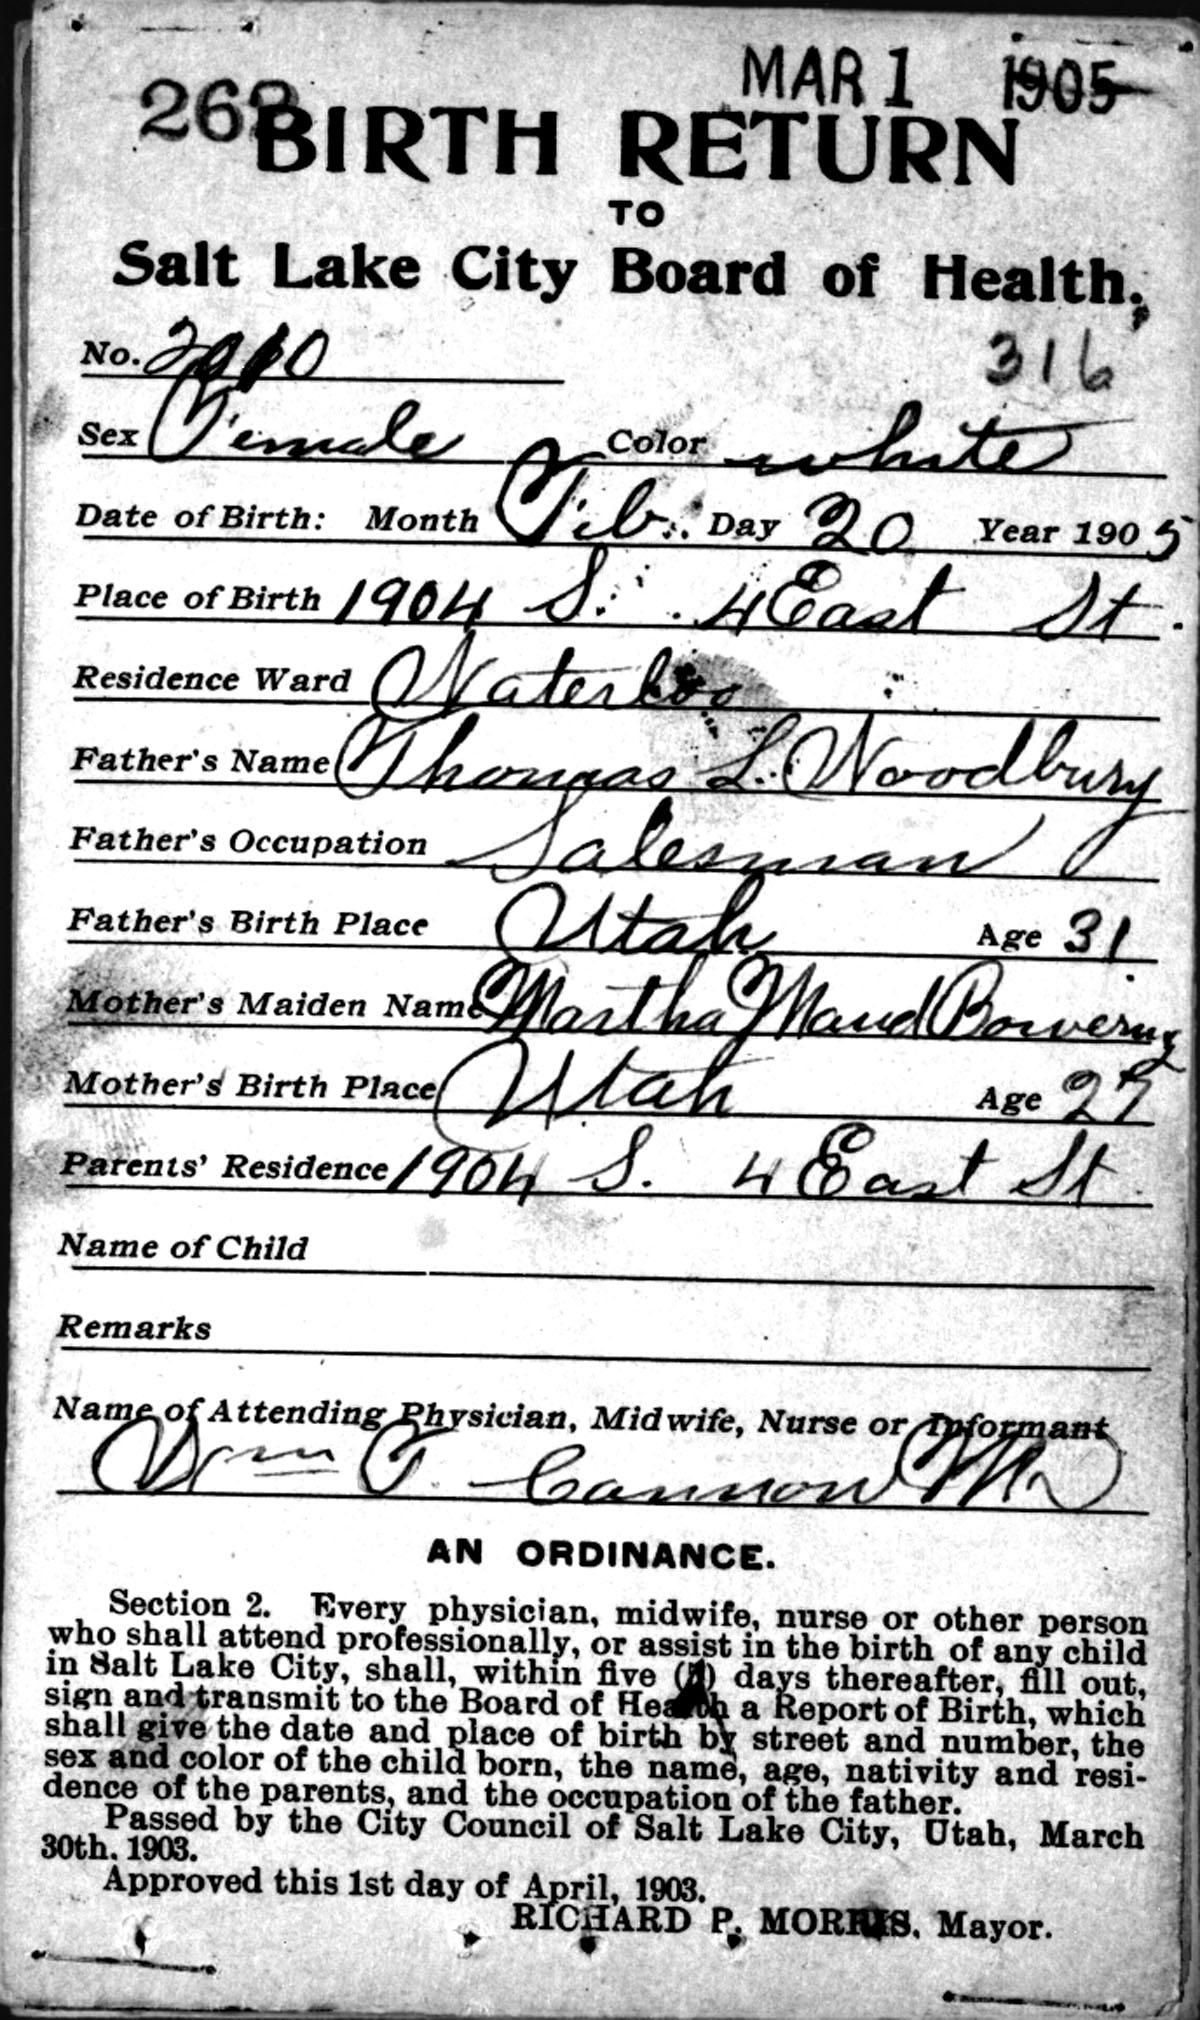 MAR 1 1905
BIRTH RETURN
TO
Salt Lake City Board of Health.
316
No.
Sex Female Color white
Date of Birth: Month Feb. Day 20 Year 1905
Place of Birth 1904 S. 4 East St.
Residence Ward Waterloo
Father's Name Thomas L. Woodbury
Father's Occupation Salesman
Father's Birth Place Utah Age 31
Mother's Maiden Name Martha Maud Bowering
Mother's Birth Place Utah Age 27
Parents' Residence 1904 S. 4 East St
Name of Child
Remarks
Name of Attending Physician, Midwife, Nurse or Informant
Wm T. Cannon MD
AN ORDINANCE.
Section 2. Every physician, midwife, nurse or other person
who shall attend professionally, or assist in the birth of any child
in Salt Lake City, shall, within five days thereafter, fill out,
sign and transmit to the Board of Health a Report of Birth, which
shall give the date and place of birth by street and number, the
sex and color of the child born, the name, age, nativity and resi-
dence of the parents, and the occupation of the father.
Passed by the City Council of Salt Lake City, Utah, March
30th. 1903.
Approved this 1st day of April, 1903.
RICHARD P. MORRIS. Mayor.